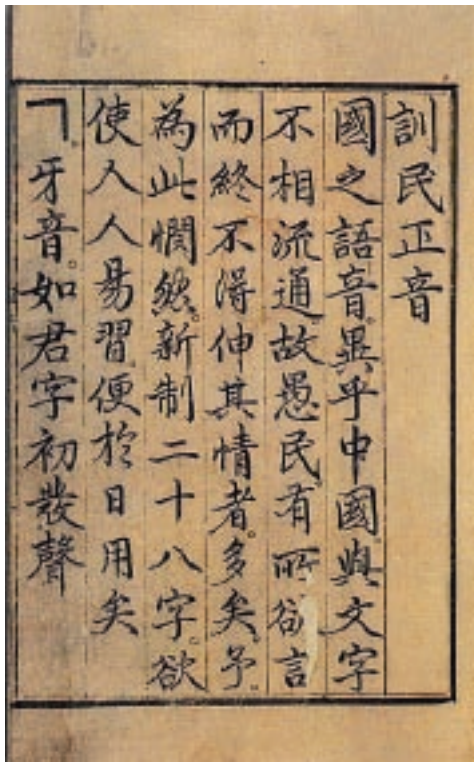 訓民正音
國之語音。異乎中國。與文字
不相流通。故愚民有所欲言
而終不得伸其情者。多矣。予。
為此憫然。新制二十八字。欲
使人人易習。便於日用矣
ㄱ。牙音。如君字初發聲